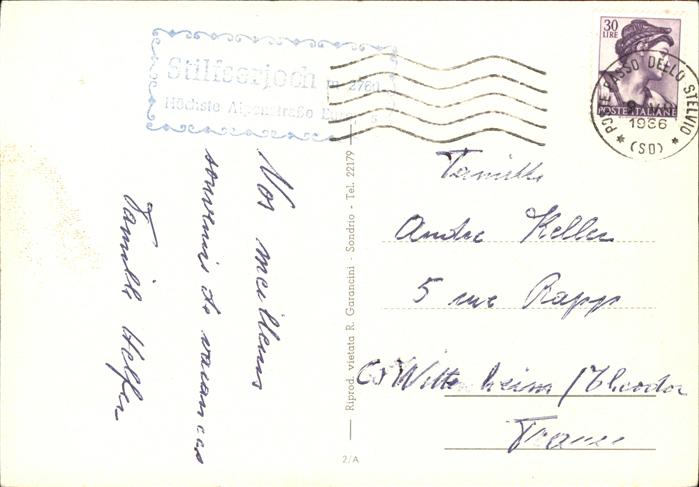 Stilfserjoch m 2760
Höchste Alpenstraße Europas
30
LIRE
POSTE ITALIANE
POSTE PASSO DELLO STELVIO
1966
(SO)
Nos meilleurs
souvenirs de vacances
Famille Helfer
Riprod. vietata R. Garancini - Sondrio - Tel. 22179
2/A
Famille
Andre Keller
5 rue Rapp
Wittenheim / Theodor
France